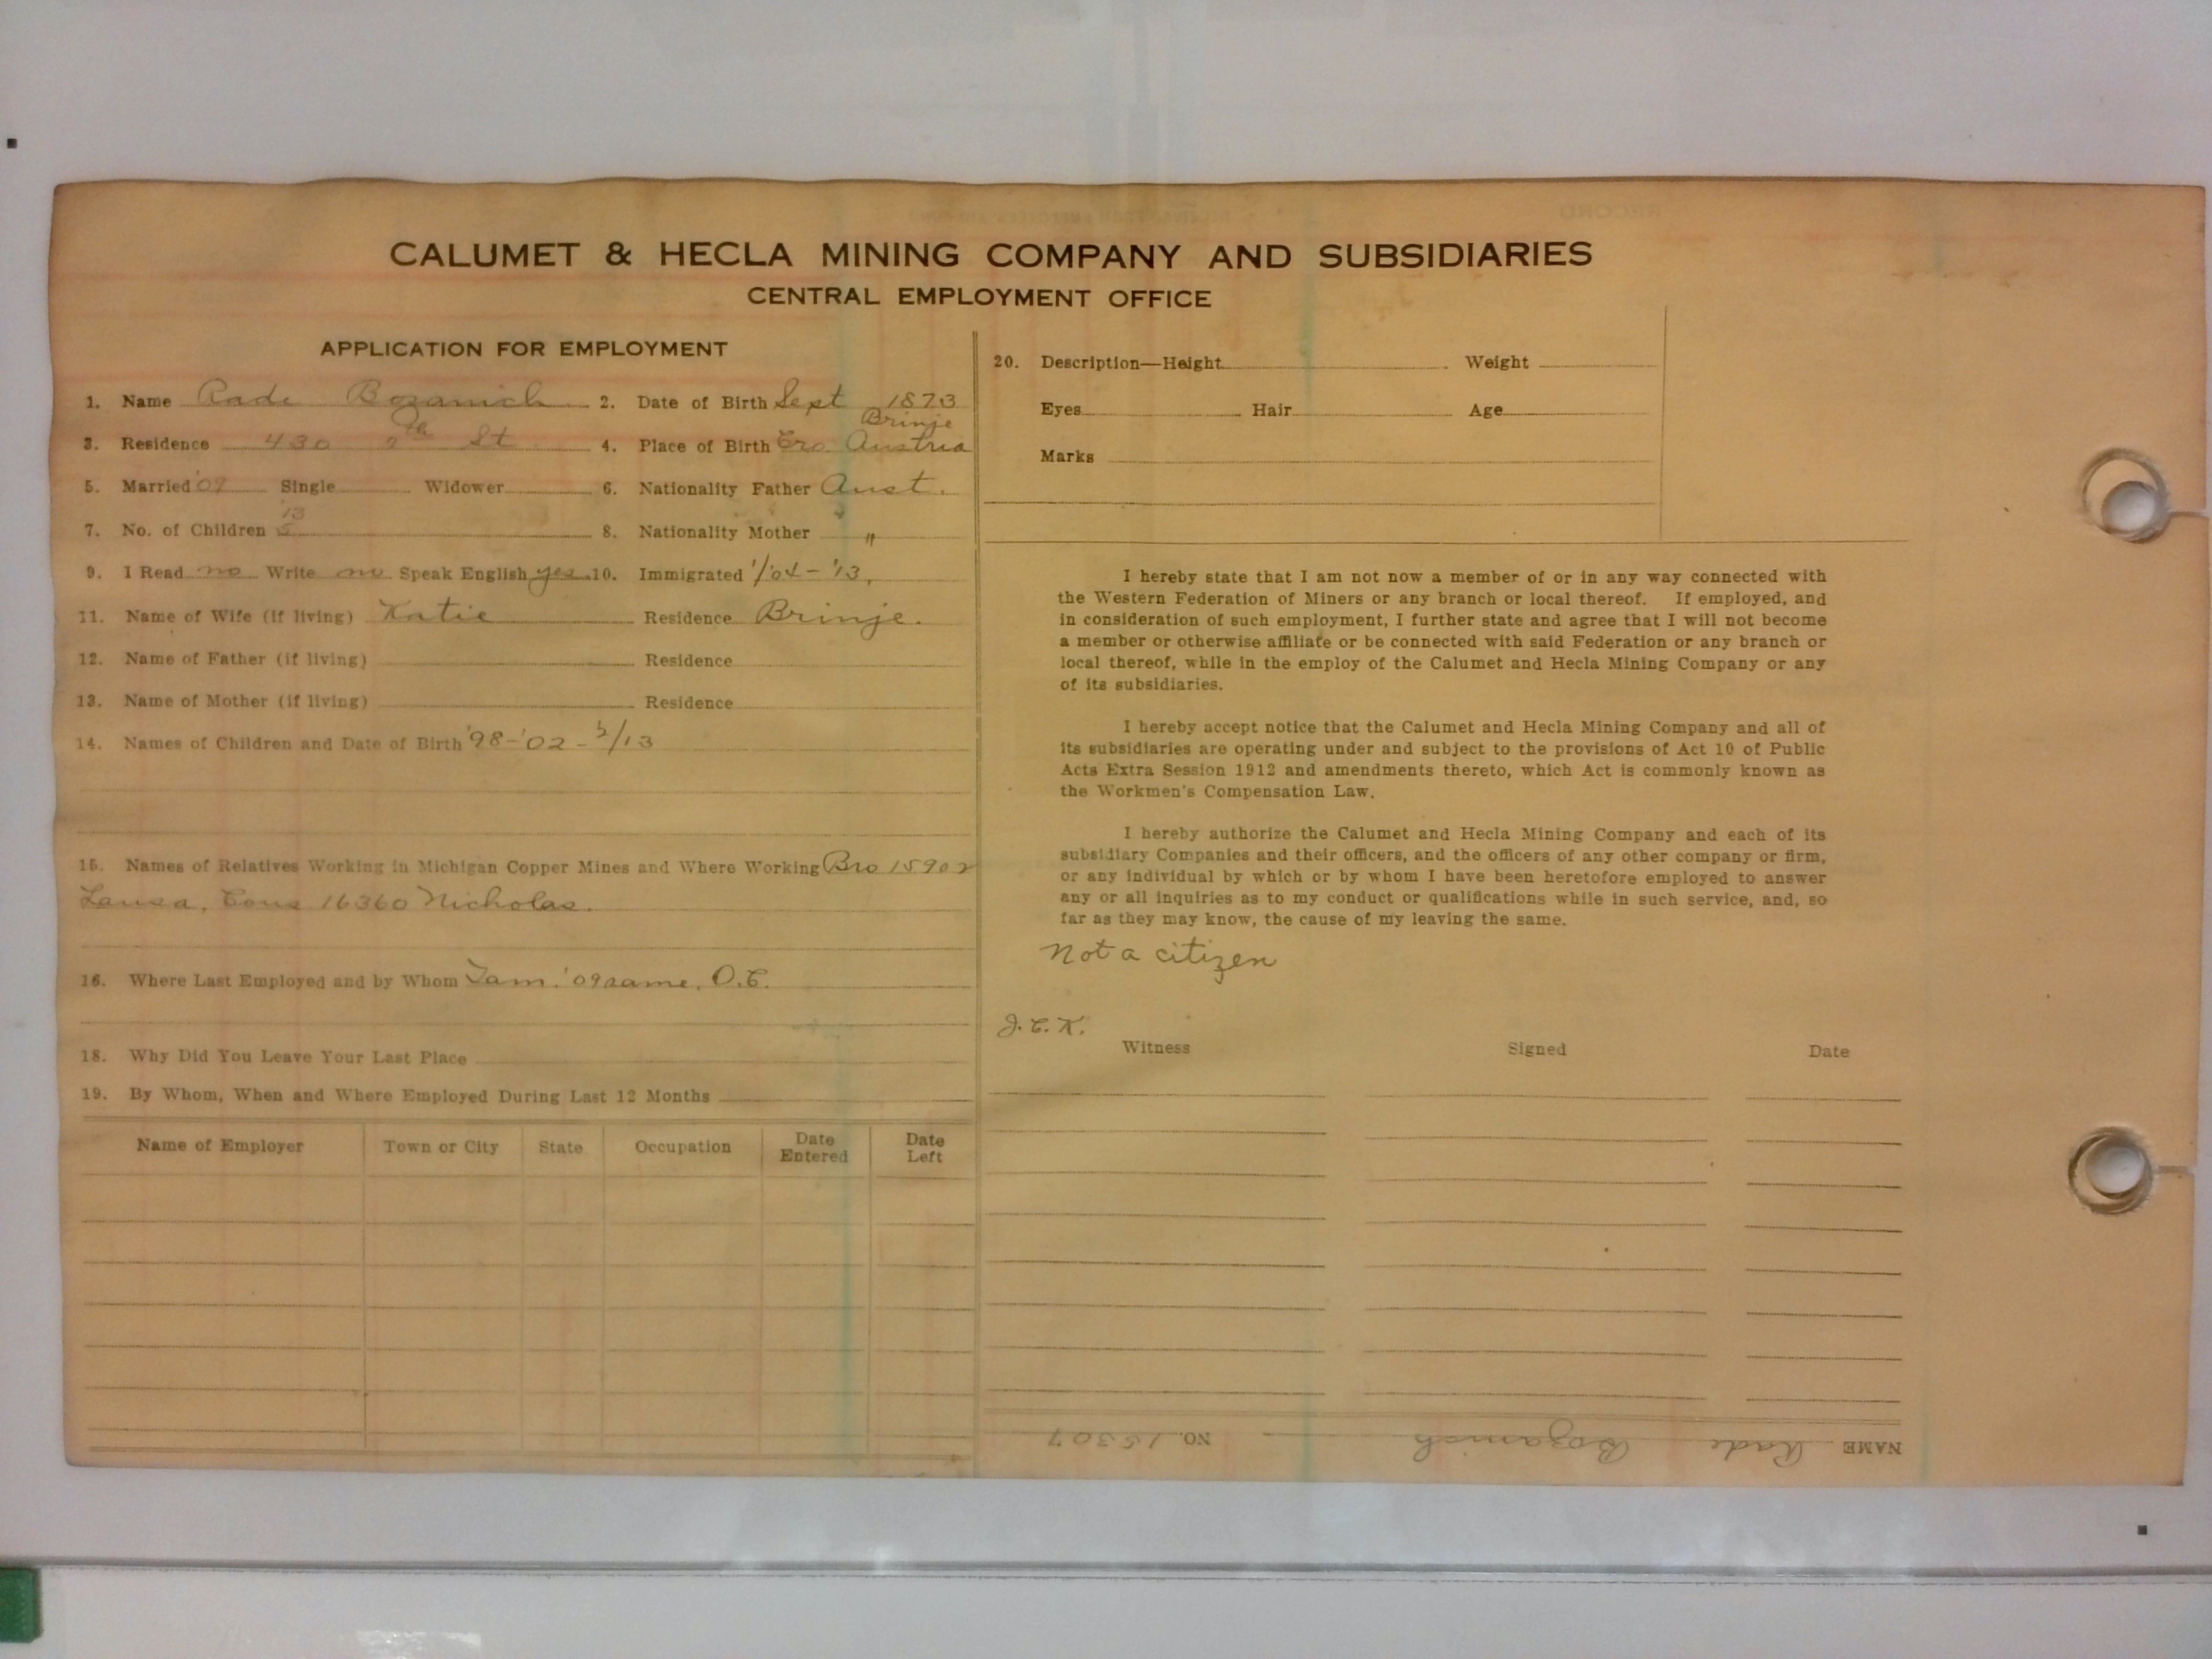 CALUMET & HECLA MINING COMPANY AND SUBSIDIARIES
CENTRAL EMPLOYMENT OFFICE
APPLICATION FOR EMPLOYMENT
1. Name Rade Bozanich 2. Date of Birth Sept 1873
Brinje
3. Residence 430 th St 4. Place of Birth Cro. Austria
5. Married '07 Single Widower 6. Nationality Father Aust.
13
7. No. of Children 8. Nationality Mother "
9. I Read no Write no Speak English yes 10. Immigrated '/'04-'13,
11. Name of Wife (if living) Katie Residence Brinje.
12. Name of Father (if living) Residence
13. Name of Mother (if living) Residence
14. Names of Children and Date of Birth '98-'02-3/13
15. Names of Relatives Working in Michigan Copper Mines and Where Working Bro 15902
Cous 16360 Nicholas.
16. Where Last Employed and by Whom Tam. '09 same, O.C.
18. Why Did You Leave Your Last Place
19. By Whom, When and Where Employed During Last 12 Months
Name of Employer Town or City State Occupation Date Entered Date Left
20. Description—Height Weight
Eyes Hair Age
Marks
I hereby state that I am not now a member of or in any way connected with
the Western Federation of Miners or any branch or local thereof. If employed, and
in consideration of such employment, I further state and agree that I will not become
a member or otherwise affiliate or be connected with said Federation or any branch or
local thereof, while in the employ of the Calumet and Hecla Mining Company or any
of its subsidiaries.
I hereby accept notice that the Calumet and Hecla Mining Company and all of
its subsidiaries are operating under and subject to the provisions of Act 10 of Public
Acts Extra Session 1912 and amendments thereto, which Act is commonly known as
the Workmen's Compensation Law.
I hereby authorize the Calumet and Hecla Mining Company and each of its
subsidiary Companies and their officers, and the officers of any other company or firm,
or any individual by which or by whom I have been heretofore employed to answer
any or all inquiries as to my conduct or qualifications while in such service, and, so
far as they may know, the cause of my leaving the same.
Not a citizen
J.C.K.
Witness Signed Date
NAME Rade Bozanich NO. 15307